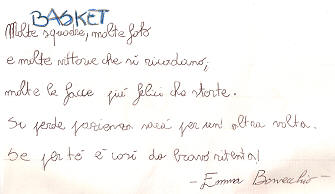 BASKET
Molte squadre, molte foto
e molte vittorie che si ricordano;
molte le facce più felici che storte.
Si perde pazienza sarà per un'altra volta.
Se per te è così da bravo ritenta!
- Emma